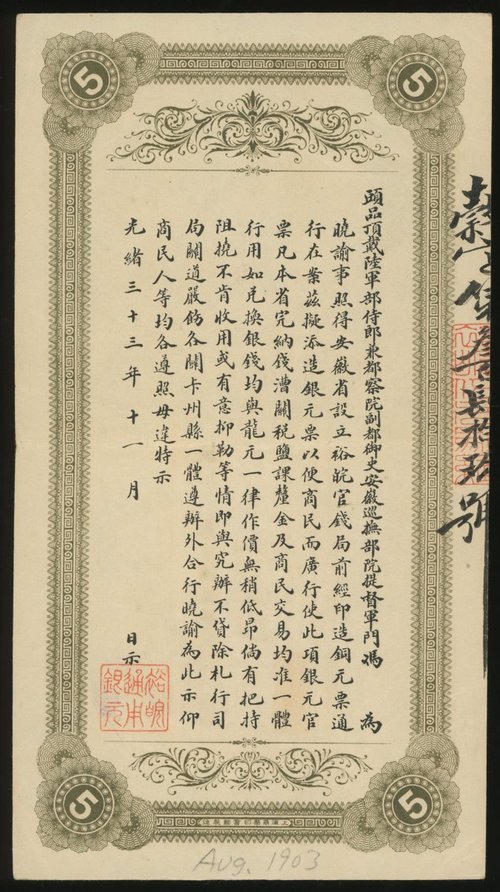 5
5
頭品頂戴陸軍部侍郎兼都察院副都御史安徽巡撫部院提督軍門馮 為
曉諭事照得安徽省設立裕皖官錢局前經印造銅元票通
行在案茲擬添造銀元票以便商民而廣行使此項銀元官
票凡本省完納錢漕關稅鹽課釐金及商民交易均准一體
行用如兌換銀錢均與龍元一律作價無稍低昂倘有把持
阻撓不肯收用或有意抑勒等情即與究辦不貸除札行司
局關道嚴飭各關卡州縣一體遵辦外合行曉諭為此示仰
商民人等均各遵照毋違特示
光緒三十三年十一月 日示
裕皖
通用
銀元
5
5
Aug. 1903